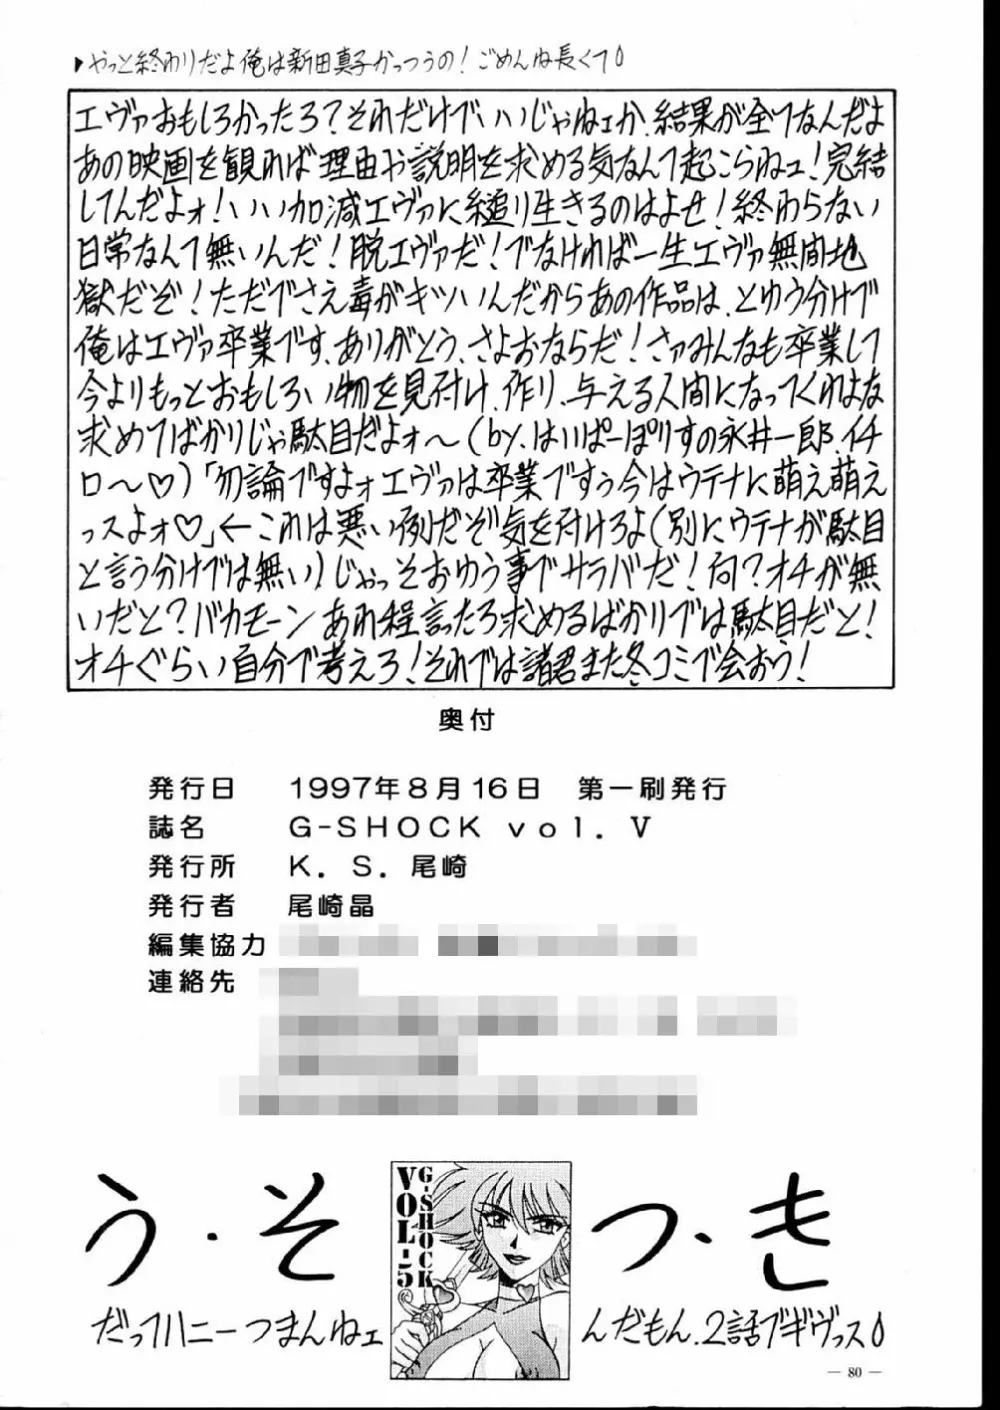 ▶やっと終わりだよ俺は新田真子かっつうの!ごめんね長くて
エヴァおもしろかったろ?それだけでいいじゃねェか、結果が全てなんだよ
あの映画を観れば理由や説明を求める気なんて起こらねェ!完結
してんだよォ!いいかげ減エヴァに縋り生きるのはよせ!終わらない
日常なんて無いんだ!脱エヴァだ!でなければ一生エヴァ無間地
獄だぞ!ただでさえ毒がキツいんだからあの作品は、とゆう分けで
俺はエヴァ卒業です、ありがとう、さよおならだ!さァみんなも卒業して
今よりもっとおもしろい物を見付け、作り、与える人間になってくれよな
求めてばかりじゃ駄目だよォ〜(by.はいぱーぽりすの永井一郎、イチ
ロ〜♡)「勿論ですよォエヴァは卒業ですぅ今はウテナに萌え萌え
っスよォ♡」←これは悪い例だぞ気を付けろよ(別にウテナが駄目
と言う分けでは無い)じゃっそおゆう事でサラバだ!何?オチが無
いだと?バカモーンあれ程言ったろ求めるばかりでは駄目だと!
オチぐらい自分で考えろ!それでは諸君また冬コミで会おう!
奥付
発行日 1997年8月16日 第一刷発行
誌名 G-SHOCK vol.V
発行所 K.S.尾崎
発行者 尾崎晶
編集協力
連絡先
う・そつ・き
G-SHOCK
VOL-5
だってハニーつまんねェんだもん、2話でギヴっス
— 80 —